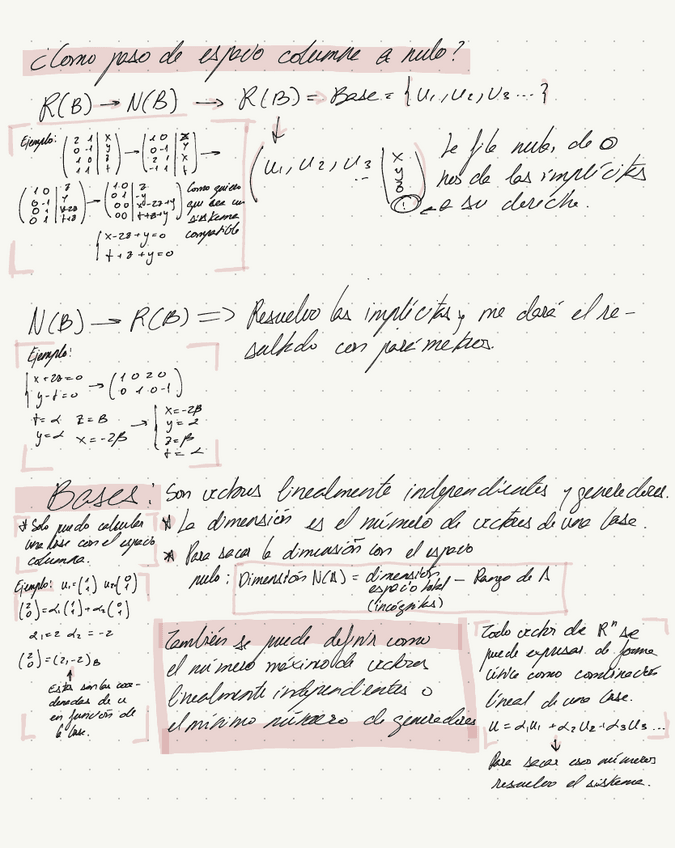 ¿Como paso de espacio columna a nulo?
R(B) → N(B) → R(B) = Base = {u₁, u₂, u₃ ...}
Ejemplo:
(u₁, u₂, u₃ ...
La fila nula, de 0
nos da las implícitas
a su derecha.
Como quiero
que sea un
sistema
compatible
x-2z+y=0
t+z+y=0
N(B) → R(B) => Resuelvo las implícitas y me dará el re-
sultado con parámetros.
Ejemplo:
x+2z=0
y-t=0
→ (1 0 2 0
0 1 0 -1)
t=α z=β
y=α x=-2β
→
x=-2β
y=α
z=β
t=α
Bases: Son vectores linealmente independientes y generadores.
* La dimensión es el número de vectores de una base.
* Para sacar la dimensión con el espacio
nulo: Dimensión N(A) = dimensión espacio total (incógnitas) - Rango de A
* Solo puedo calcular
una base con el espacio
columna.
Ejemplo: u₁=(1 1) u₂=(0 1)
(2 0)=α₁(1 1)+α₂(0 1)
α₁=2 α₂=-2
(2 0)=(2,-2)B
↑
Estas son las coor-
denadas de u
en función de
la base.
También se puede definir como
el número máximo de vectores
linealmente independientes o
el mínimo número de generadores
Todo vector de Rⁿ se
puede expresar de forma
única como combinación
lineal de una base.
u = α₁u₁ + α₂u₂ + α₃u₃...
↓
Para sacar esos números
resuelvo el sistema.